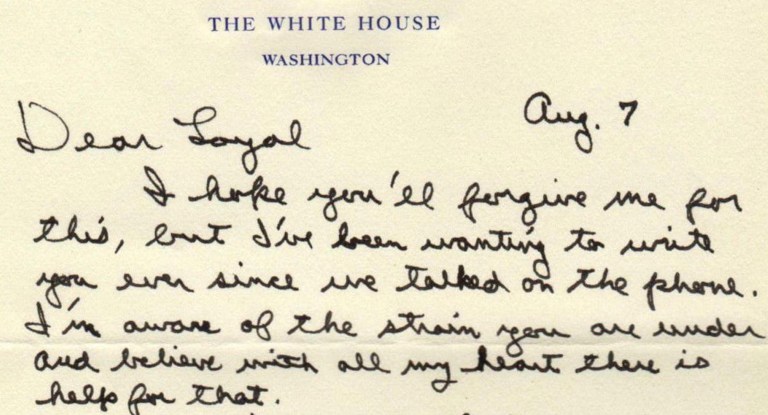 THE WHITE HOUSE
WASHINGTON
Aug. 7
Dear Loyal
I hope you'll forgive me for
this, but I've been wanting to write
you ever since we talked on the phone.
I'm aware of the strain you are under
and believe with all my heart there is
help for that.